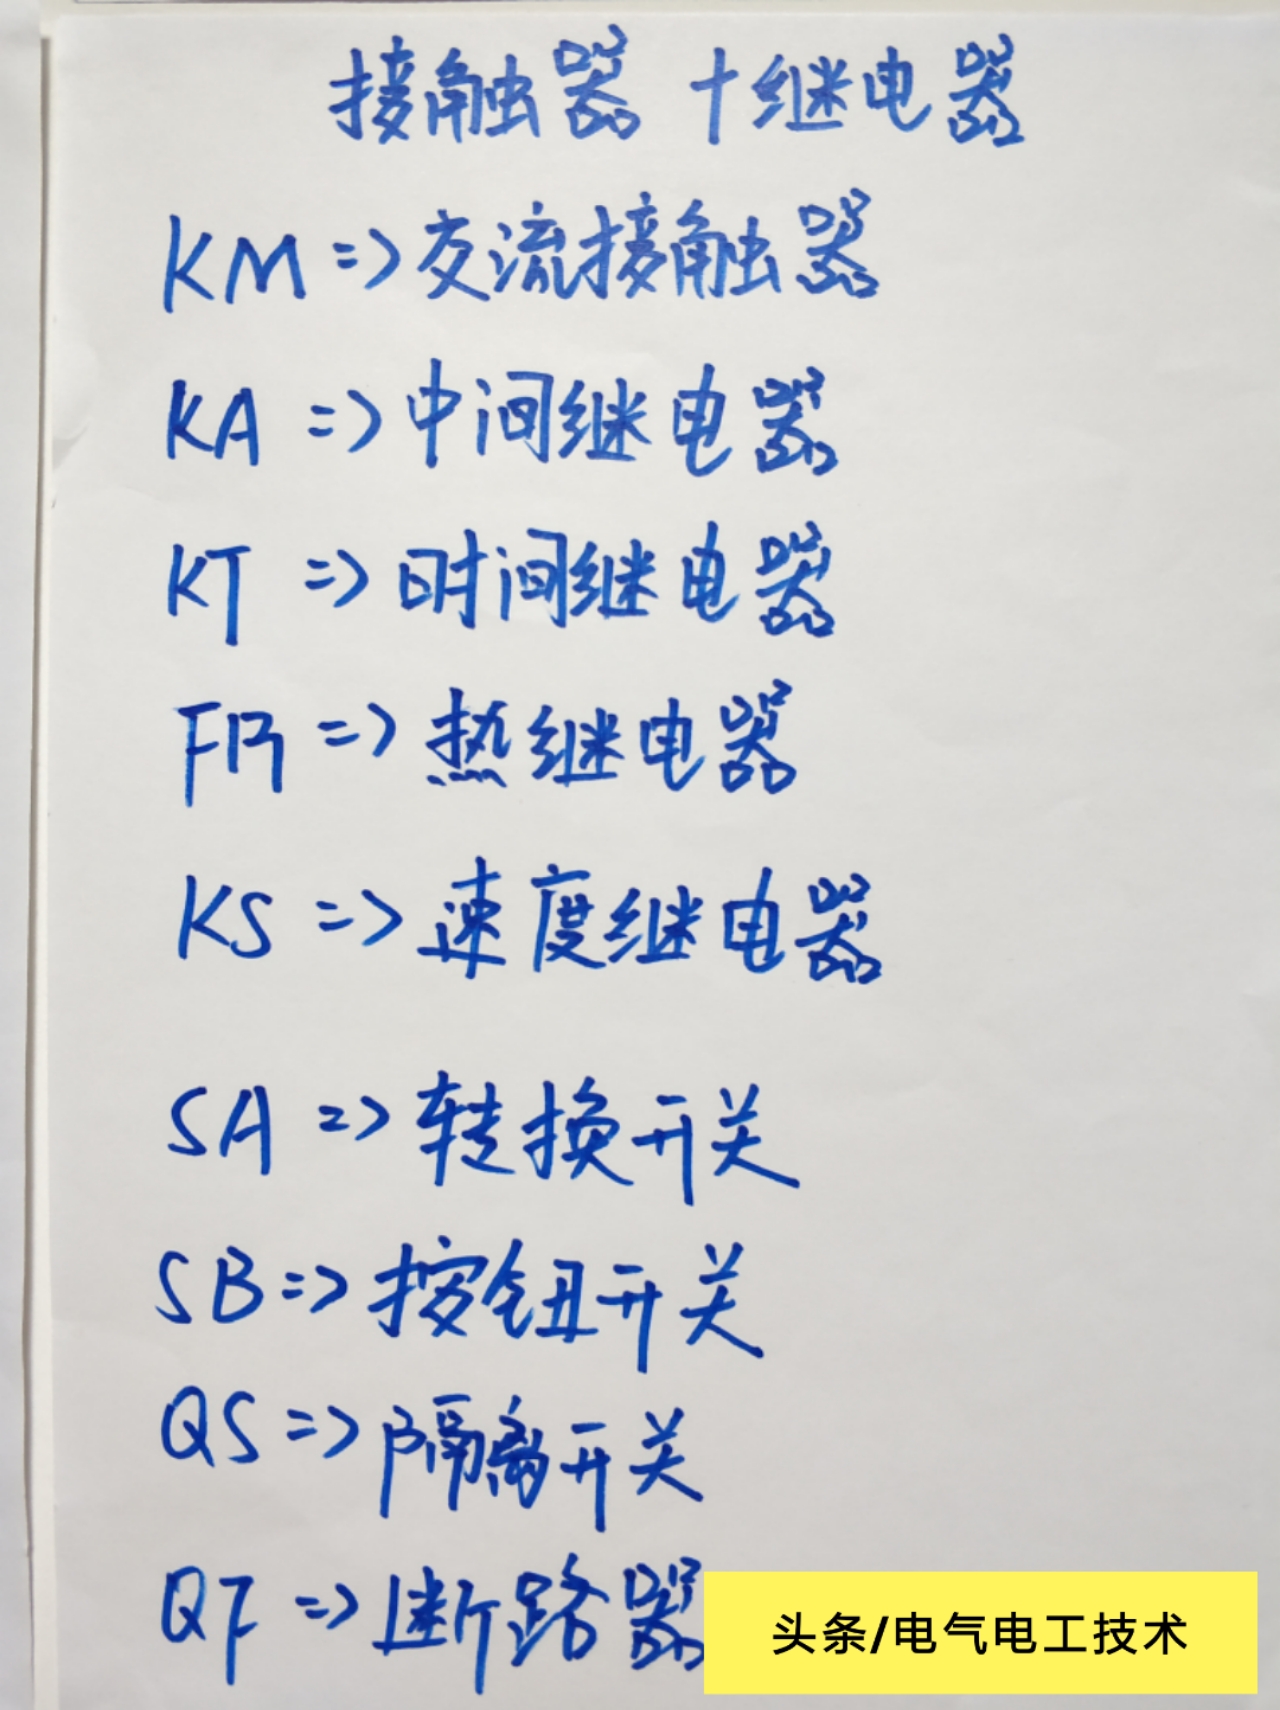 接触器 +继电器
KM=>交流接触器
KA=>中间继电器
KT=>时间继电器
FR=>热继电器
KS=>速度继电器
SA=>转换开关
SB=>按钮开关
QS=>隔离开关
QF=>断路器
头条/电气电工技术